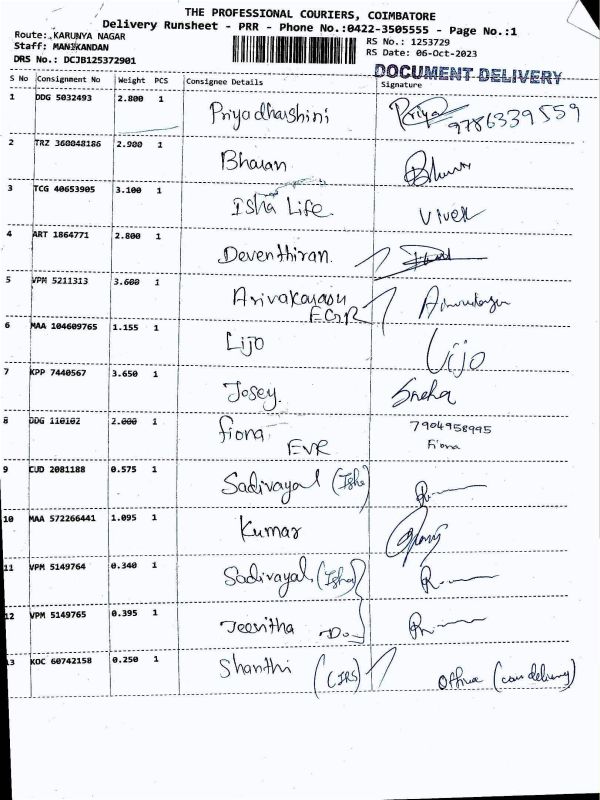 THE PROFESSIONAL COURIERS, COIMBATORE
Delivery Runsheet - PRR - Phone No.:0422-3505555 - Page No.:1
Route: KARUNYA NAGAR
RS No.: 1253729
Staff: MANIKANDAN
RS Date: 06-Oct-2023
DRS No.: DCJB125372901
DOCUMENT DELIVERY
S No Consignment No Weight PCS Consignee Details Signature
1 DDG 5032493 2.800 1 Priyadharshini Priya 9786339559
2 TRZ 360048186 2.900 1 Bharan
3 TCG 40653905 3.100 1 Isha Life Vivek
4 ART 1864771 2.800 1 Deventhiran.
5 VPM 5211313 3.600 1 Arivakarasu
EGR
6 MAA 104609765 1.155 1 Lijo Lijo
7 KPP 7440567 3.650 1 Josey. Sneha
8 DDG 110102 2.000 1 fiona 7904958995
EVR Fiona
9 CUD 2081188 0.575 1 Sadivayal (Isha)
10 MAA 572266441 1.095 1 Kumar
11 VPM 5149764 0.340 1 Sadivayal (Isha)
12 VPM 5149765 0.395 1 Jeevitha -Do-
13 KOC 60742158 0.250 1 Shanthi (CIRS) (can delivery)